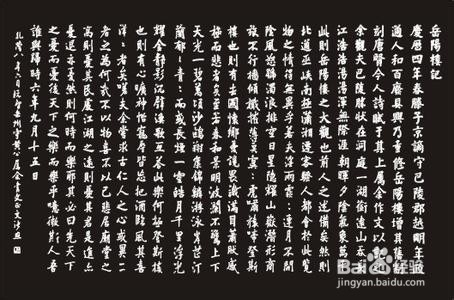 岳陽樓記
慶曆四年春滕子京謫守巴陵郡越明年政
通人和百廢具興乃重修岳陽樓增其舊制
刻唐賢今人詩賦于其上屬余作文以記之
余觀夫巴陵勝狀在洞庭一湖銜遠山吞長
江浩浩湯湯橫無際涯朝暉夕陰氣象萬千
此則岳陽樓之大觀也前人之述備矣然則
北通巫峽南極瀟湘遷客騷人多會於此覽
物之情得無異乎若夫淫雨霏々連月不開
陰風怒號濁浪排空日星隱耀山嶽潛形商
旅不行檣傾楫摧薄暮冥々虎嘯猿啼登斯
樓也則有去國懷鄉憂讒畏譏滿目蕭然感
極而悲者矣至若春和景明波瀾不驚上下
天光一碧萬頃沙鷗翔集錦鱗游泳岸芷汀
蘭郁々青々而或長煙一空皓月千里浮光
耀金靜影沉璧漁歌互答此樂何極登斯樓
也則有心曠神怡寵辱皆忘把酒臨風其喜
洋々者矣嗟夫余嘗求古仁人之心或異二
者之為何哉不以物喜不以己悲居廟堂之
高則憂其民處江湖之遠則憂其君是進亦
憂退亦憂然則何時而樂耶其必曰先天下
之憂而憂後天下之樂而樂乎噫微斯人吾
誰與歸時六年九月十五日
乾隆八年六月
Baidu 百度经验
jingyan.baidu.com